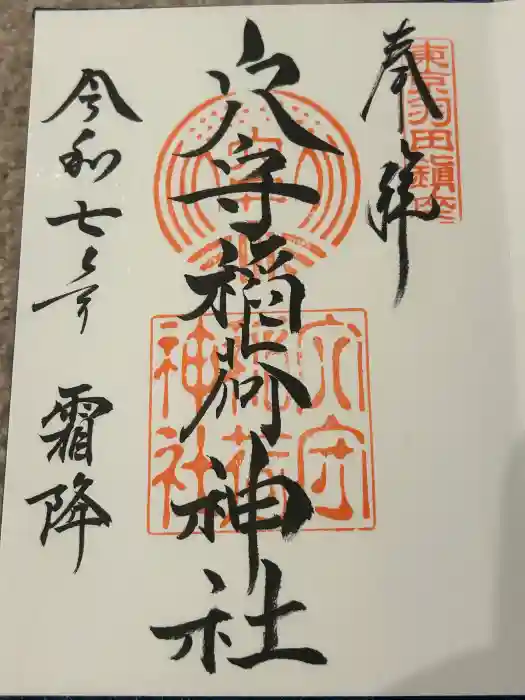 奉拝
東京羽田鎮座
穴守稲荷神社
穴守
稲荷
神社
令和七年 霜降